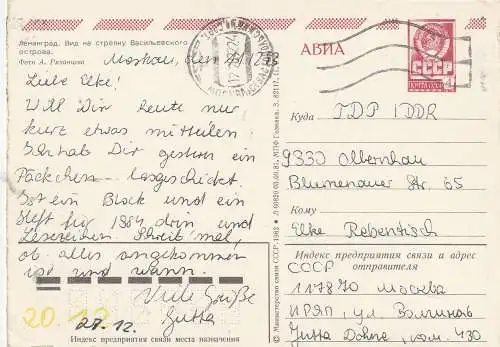 Ленинград. Вид на стрелку Васильевского
острова.
Фото А. Рязанцева
Moskau, den
Liebe Elke!
Will Dir heute nur
kurz etwas mitteilen.
Ich hab Dir gestern ein
Päckchen losgeschickt.
Ist ein Block und ein
Heft für 1984 drin und
Lesezeichen. Schreib mal,
ob alles angekommen
ist und wann.
Viele Grüße
Jutta
20.12.
27.12.
Индекс предприятия связи места назначения
© Министерство связи СССР. 1982
АВИА
СССР
ПОЧТА
4
Куда ГДР / DDR
9330 Olbernhau
Blumenauer Str. 65
Кому
Elke Rebentisch
Индекс предприятия связи и адрес
отправителя
СССР
117870 Москва
ИРЯП, ул. Волгина 6
Jutta ком. 430